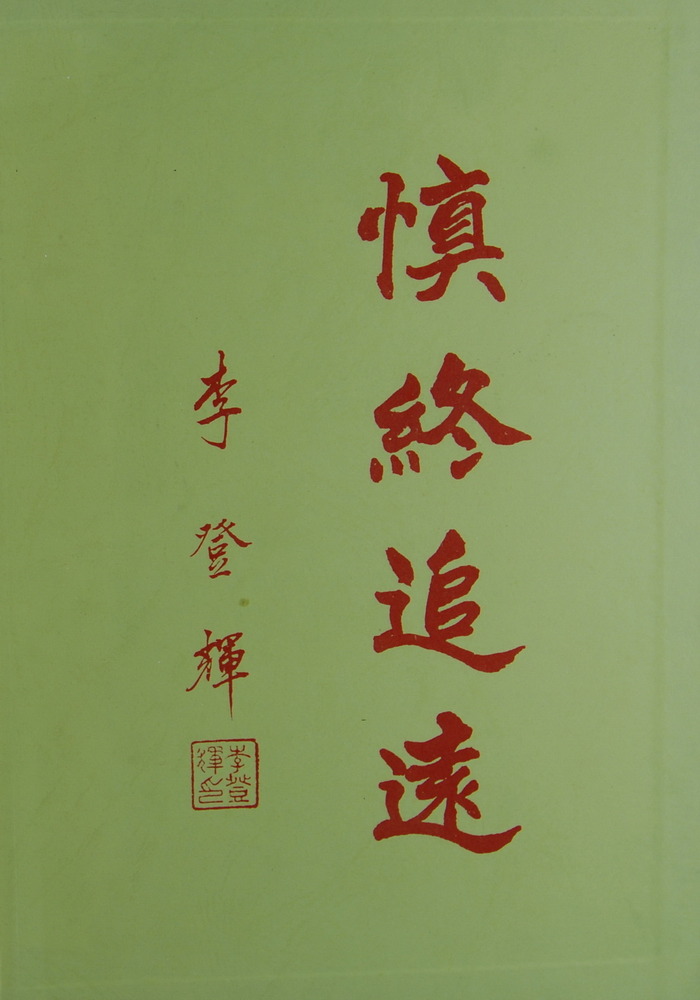 慎終追遠
李登輝
李登
輝印